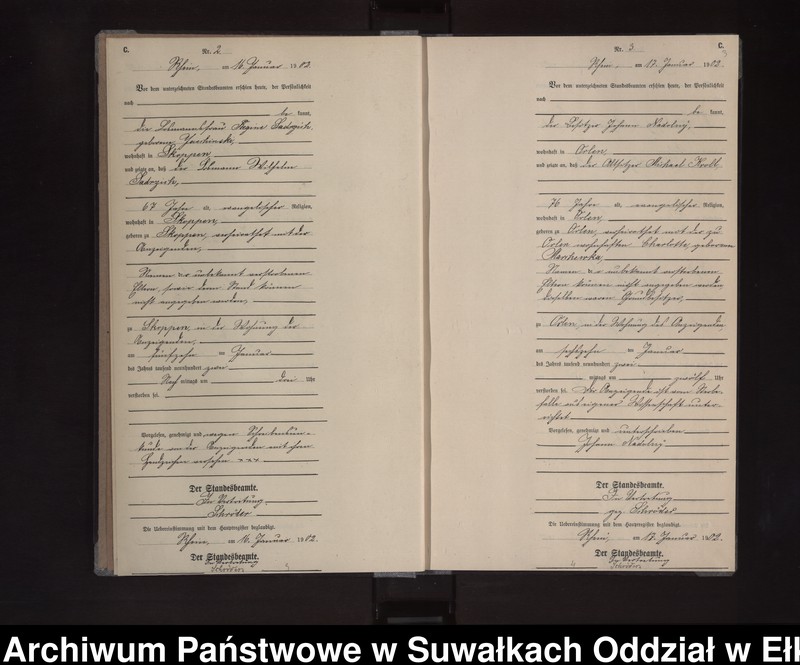 C.
Nr. 2
Rhein, am 16. Januar 1902.
Vor dem unterzeichneten Standesbeamten erschien heute, der Persönlichkeit
nach
be kannt,
die Losmannsfrau Regine
geborene
wohnhaft in Skoppen,
und zeigte an, daß der Losmann Wilhelm
67 Jahre a evangelischer Religion,
wohnhaft in Skoppen,
geboren zu Skoppen, verheirathet mit der
Anzeigenden,
Namen der unbekannt verstorbenen
Eltern, sowie deren Stand können
nicht angegeben werden,
zu Skoppen, in der Wohnung der
Anzeigenden,
am fünfzehn ten Januar
des Jahres tausend neunhundert zwei
Nach mittags um drei Uhr
verstorben sei.
Vorgelesen, genehmigt und wegen Schreibensun-
kunde von der Anzeigenden mit ihren
Handzeichen versehen + + +
Der Standesbeamte.
In Vertretung
Schröder
Die Uebereinstimmung mit dem Hauptregister beglaubigt.
Rhein, am 16. Januar 1902.
Der Standesbeamte.
In Vertretung
Schröder.
3
C.
3
Nr. 3
Rhein, am 17. Januar 1902.
Vor dem unterzeichneten Standesbeamten erschien heute, der Persönlichkeit
nach
be kannt,
der Besitzer Johann Nadolny,
wohnhaft in Orlen,
und zeigte an, daß der Altsitzer Michael Kroll
76 Jahre a, evangelischer Religion,
wohnhaft in Orlen,
geboren zu Orlen, verheirathet mit der zu
Orlen wohnhaften Charlotte, geborenen
Namen der unbekannt verstorbenen
Eltern können nicht angegeben werden,
dieselben waren Grundbesitzer,
zu Orlen, in der Wohnung des Anzeigenden,
am sechszehn ten Januar
des Jahres tausend neunhundert zwei
mittags um zwölf Uhr
verstorben sei. Der Anzeigende ist vom Sterbe-
falle aus eigener Wissenschaft unter-
richtet.
Vorgelesen, genehmigt und unterschrieben
Johann Nadolny
Der Standesbeamte.
In Vertretung
gez. Schröder
Die Uebereinstimmung mit dem Hauptregister beglaubigt.
Rhein, am 17. Januar 1902.
Der Standesbeamte.
In Vertretung
Schröder.
4
Archiwum Państwowe w Suwałkach Oddział w Ełk